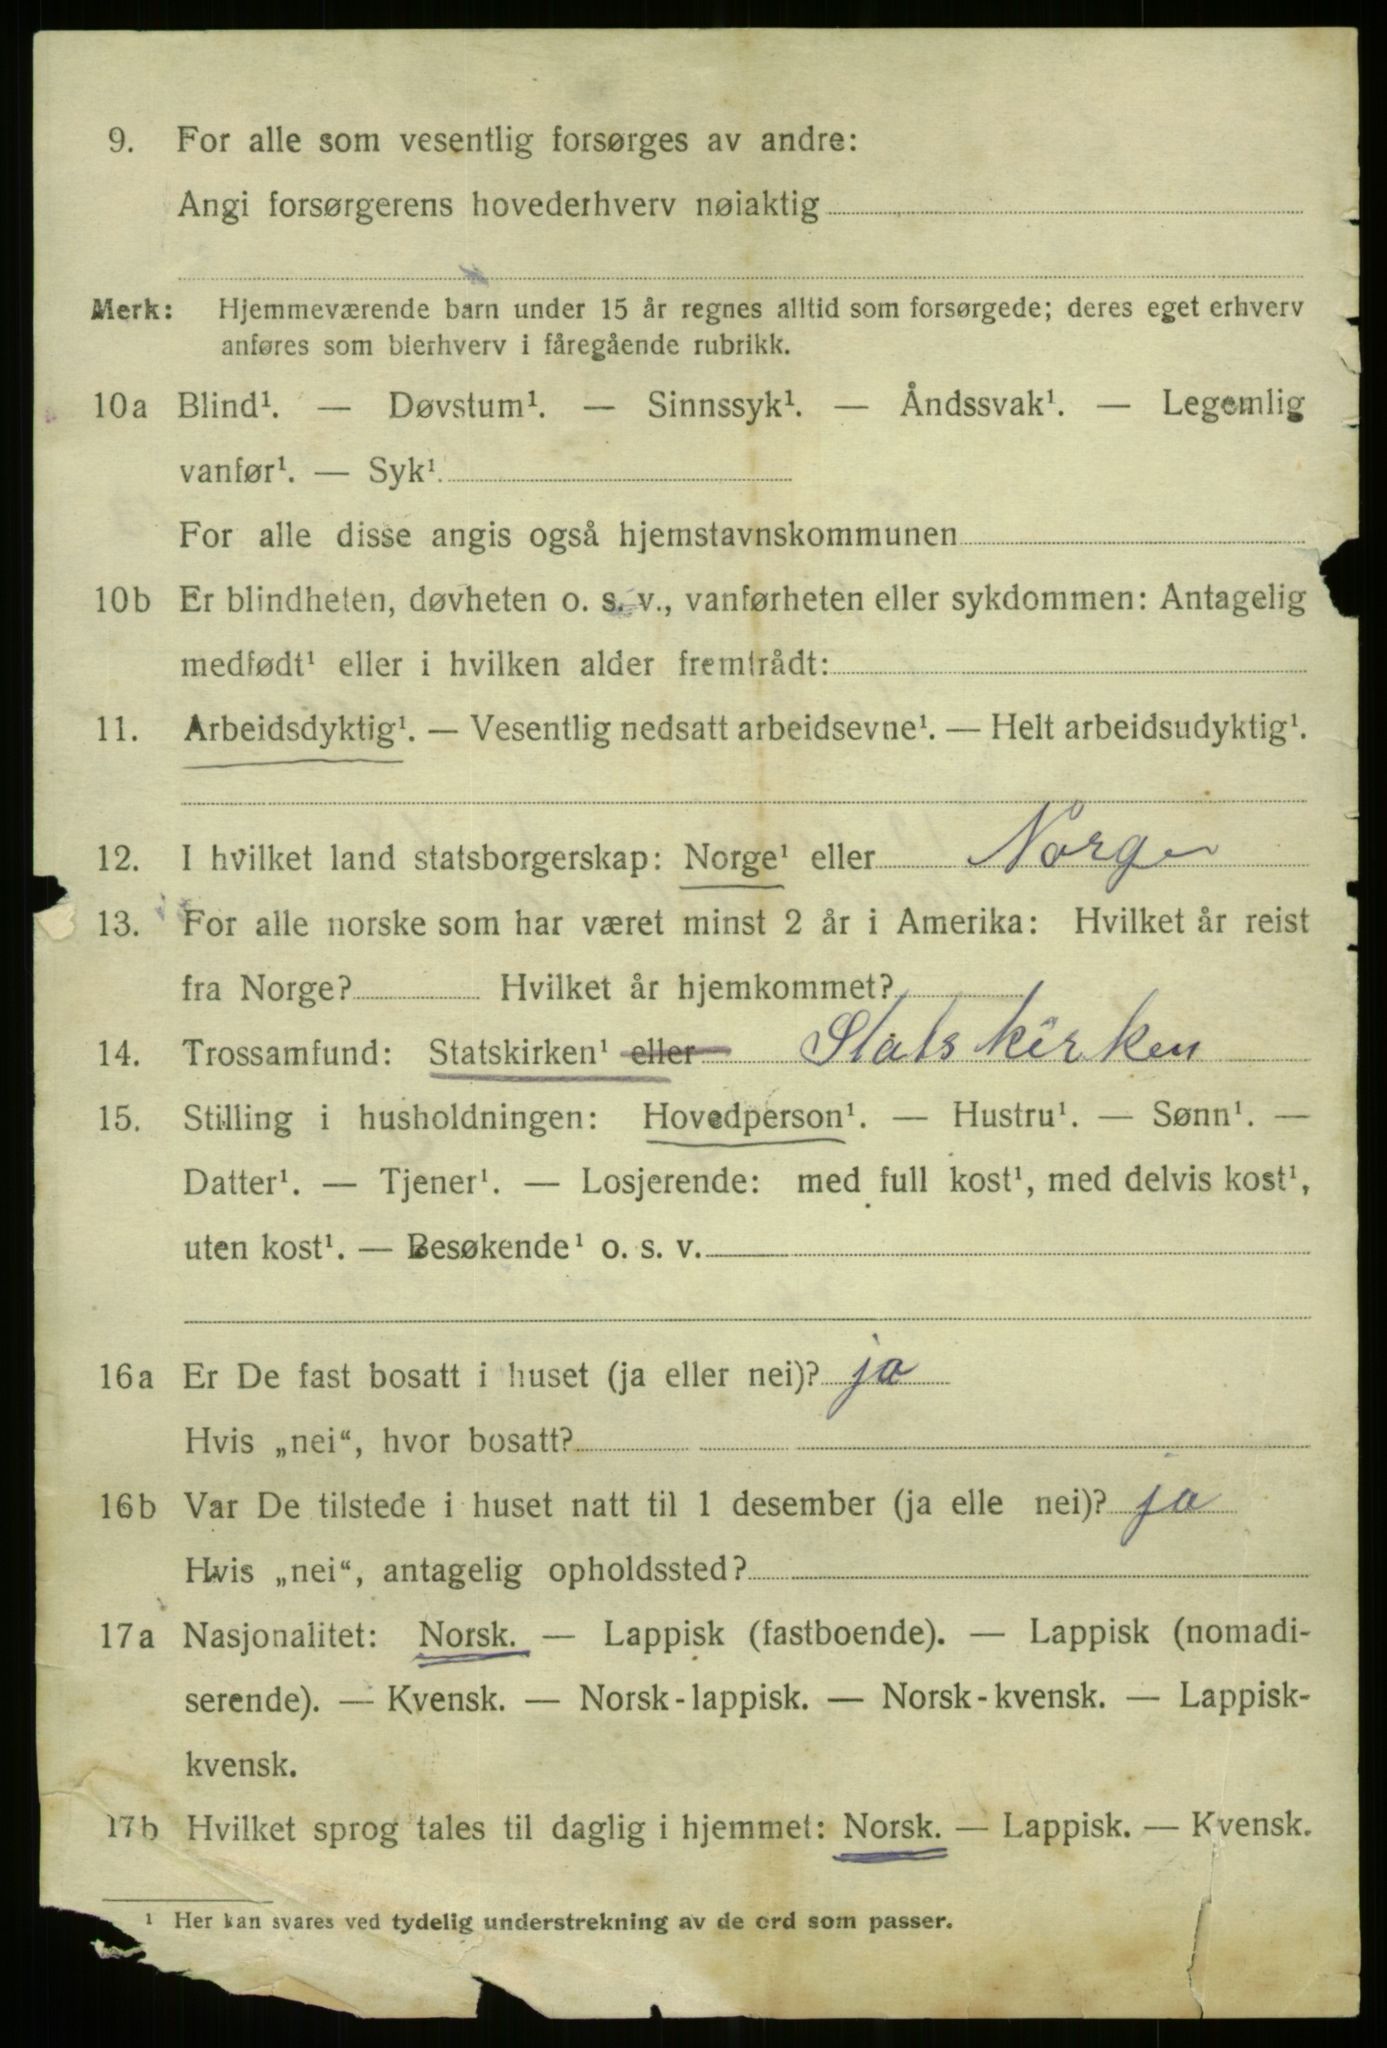 9. For alle som vesentlig forsørges av andre:
Angi forsørgerens hovederhverv nøiaktig
Merk: Hjemmeværende barn under 15 år regnes alltid som forsørgede; deres eget erhverv
anføres som bierhverv i fåregående rubrikk.
10a Blind¹. — Døvstum¹. — Sinnssyk¹. — Åndssvak¹. — Legemlig
vanfør¹. — Syk¹.
For alle disse angis også hjemstavnskommunen
10b Er blindheten, døvheten o. s. v., vanførheten eller sykdommen: Antagelig
medfødt¹ eller i hvilken alder fremtrådt:
11. Arbeidsdyktig¹. — Vesentlig nedsatt arbeidsevne¹. — Helt arbeidsudyktig¹.
12. I hvilket land statsborgerskap: Norge¹ eller Norge
13. For alle norske som har været minst 2 år i Amerika: Hvilket år reist
fra Norge? Hvilket år hjemkommet?
14. Trossamfund: Statskirken¹ eller Statskirken
15. Stilling i husholdningen: Hovedperson¹. — Hustru¹. — Sønn¹. —
Datter¹. — Tjener¹. — Losjerende: med full kost¹, med delvis kost¹,
uten kost¹. — Besøkende¹ o. s. v.
16a Er De fast bosatt i huset (ja eller nei)? ja
Hvis „nei“, hvor bosatt?
16b Var De tilstede i huset natt til 1 desember (ja elle nei)? ja
Hvis „nei“, antagelig opholdssted?
17a Nasjonalitet: Norsk. — Lappisk (fastboende). — Lappisk (nomadi-
serende). — Kvensk. — Norsk-lappisk. — Norsk-kvensk. — Lappisk-
kvensk.
17b Hvilket sprog tales til daglig i hjemmet: Norsk. — Lappisk. — Kvensk.
¹ Her kan svares ved tydelig understrekning av de ord som passer.